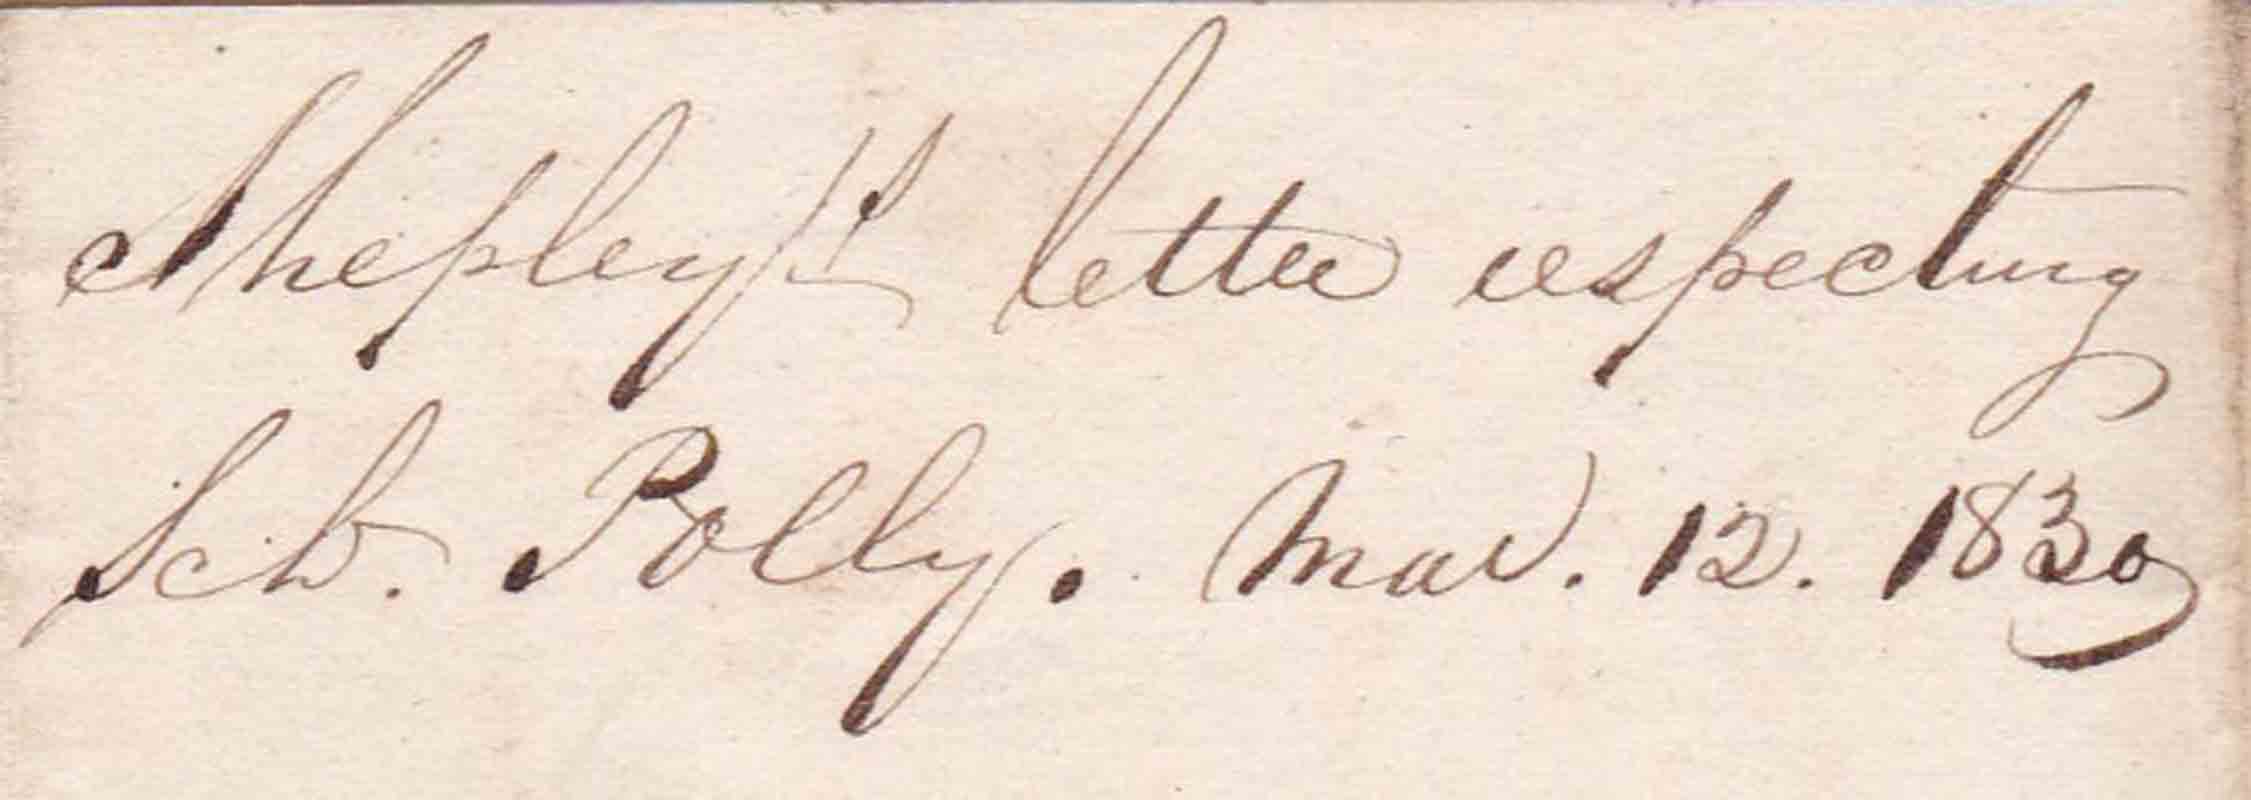 Shepley's letter respecting
Sch. Polly. Mar. 12. 1830